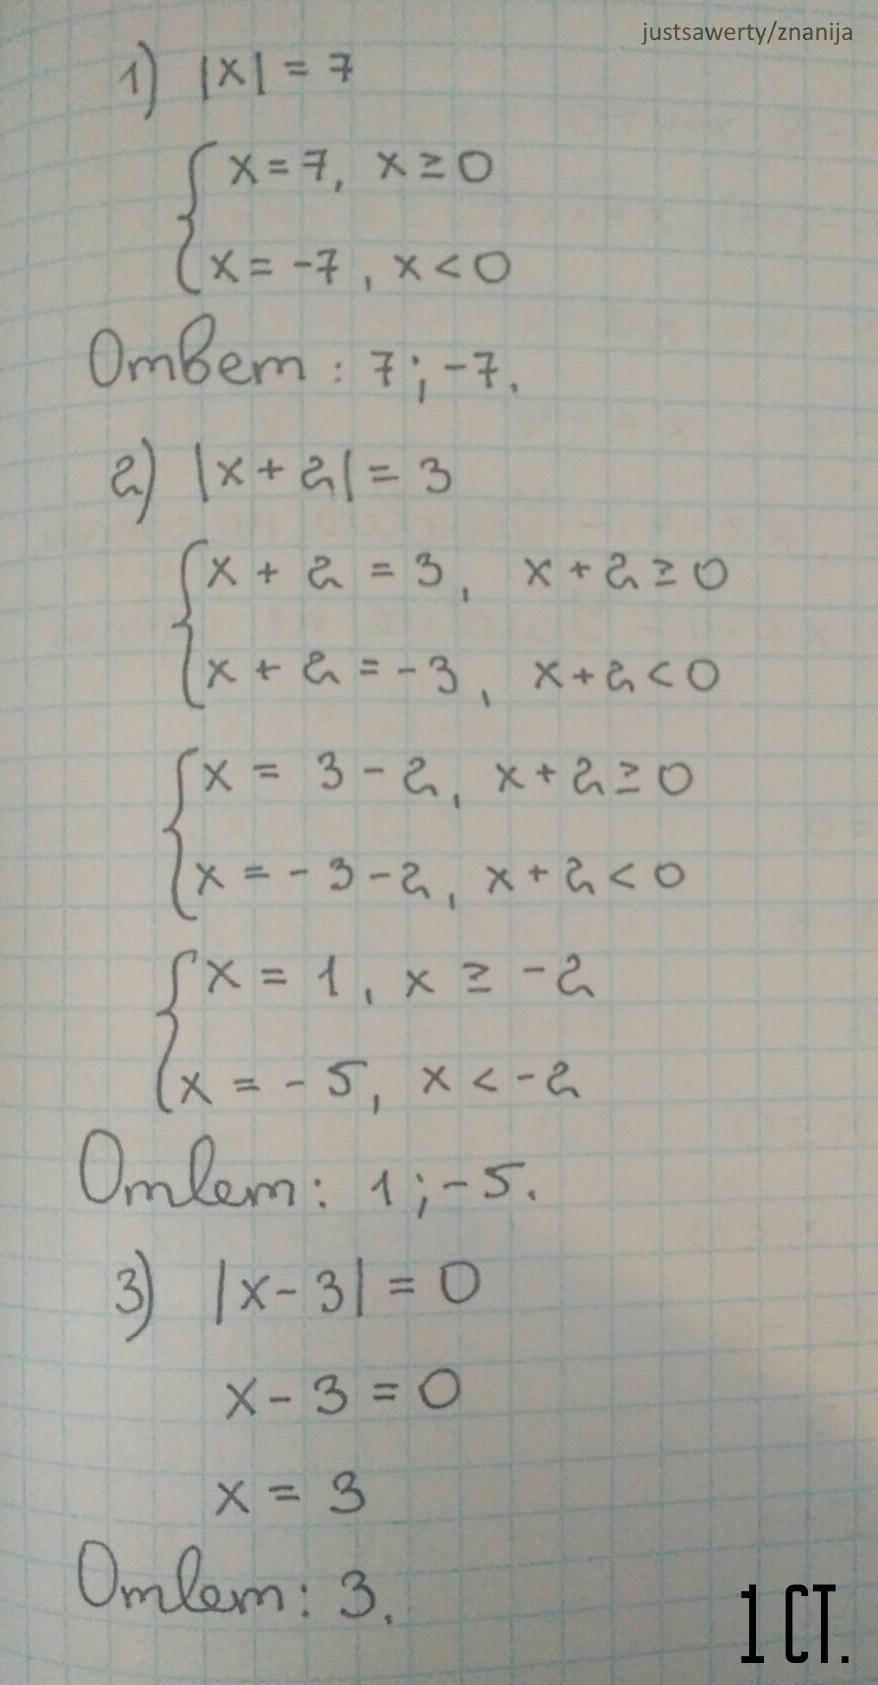 justsawerty/znanija
1) |x| = 7
x = 7, x ≥ 0
x = -7, x < 0
Ответ: 7; -7.
2) |x + 2| = 3
x + 2 = 3, x + 2 ≥ 0
x + 2 = -3, x + 2 < 0
x = 3 - 2, x + 2 ≥ 0
x = -3 - 2, x + 2 < 0
x = 1, x ≥ -2
x = -5, x < -2
Ответ: 1; -5.
3) |x - 3| = 0
x - 3 = 0
x = 3
Ответ: 3.
1 СТ.